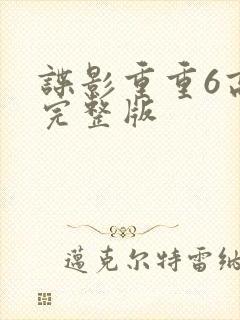 諜影重重6高
完整版
邁克尔特雷纳